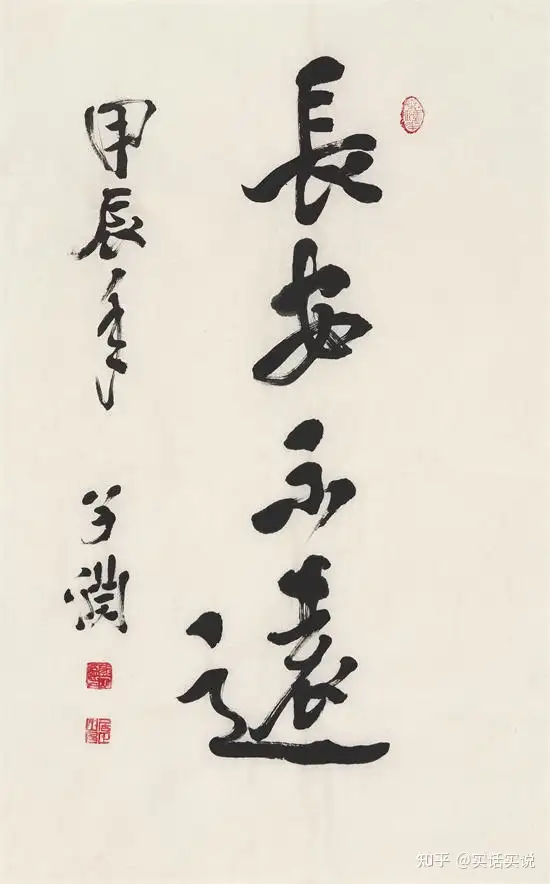 長安永遠
甲辰年
知乎 @实话实说